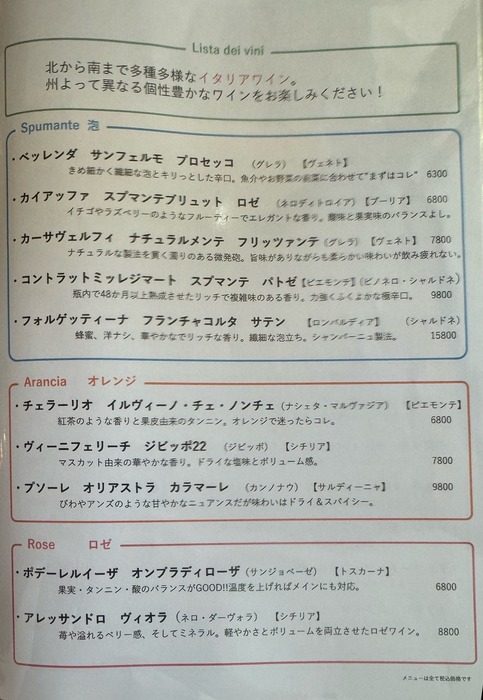 Lista dei vini
北から南まで多種多様なイタリアワイン。
州よって異なる個性豊かなワインをお楽しみください！
Spumante 泡
・ベッレンダ サンフェルモ プロセッコ （グレラ） 【ヴェネト】
きめ細かく繊細な泡とキリっとした辛口。魚介やお野菜の前菜に合わせて"まずはコレ" 6300
・カイアッファ スプマンテブリュット ロゼ （ネロディトロイア）【プーリア】 6800
イチゴやラズベリーのようなフルーティーでエレガントな香り。酸味と果実味のバランスよし。
・カーサヴェルフィ ナチュラルメンテ フリッツァンテ（グレラ） 【ヴェネト】 7800
ナチュラルな製法を貫く濁りのある微発砲。旨味がありながらも柔らかい味わいが飲み疲れない。
・コントラットミッレジマート スプマンテ パトゼ【ピエモンテ】（ピノネロ・シャルドネ）
瓶内で48か月以上熟成させたリッチで複雑味のある香り。力強くふくよかな極辛口。 9800
・フォルゲッティーナ フランチャコルタ サテン 【ロンバルディア】 （シャルドネ）
蜂蜜、洋ナシ、華やかなでリッチな香り。繊細な泡立ち。シャンパーニュ製法。 15800
Arancia オレンジ
・チェラーリオ イルヴィーノ・チェ・ノンチェ（ナシェタ・マルヴァジア） 【ピエモンテ】
紅茶のような香りと果皮由来のタンニン。オレンジで迷ったらコレ。 6800
・ヴィーニフェリーチ ジビッボ22 （ジビッボ） 【シチリア】
マスカット由来の華やかな香り。ドライな塩味とボリューム感。 7800
・プソーレ オリアストラ カラマーレ （カンノナウ） 【サルディーニャ】 9800
びわやアンズのような甘やかなニュアンスだが味わいはドライ＆スパイシー。
Rose ロゼ
・ポデーレルイーザ オンブラディローザ（サンジョベーゼ） 【トスカーナ】
果実・タンニン・酸のバランスがGOOD!!温度を上げればメインにも対応。 6800
・アレッサンドロ ヴィオラ（ネロ・ダーヴォラ） 【シチリア】
苺や溢れるベリー感、そしてミネラル。軽やかさとボリュームを両立させたロゼワイン。 8800
メニューは全て税込価格です